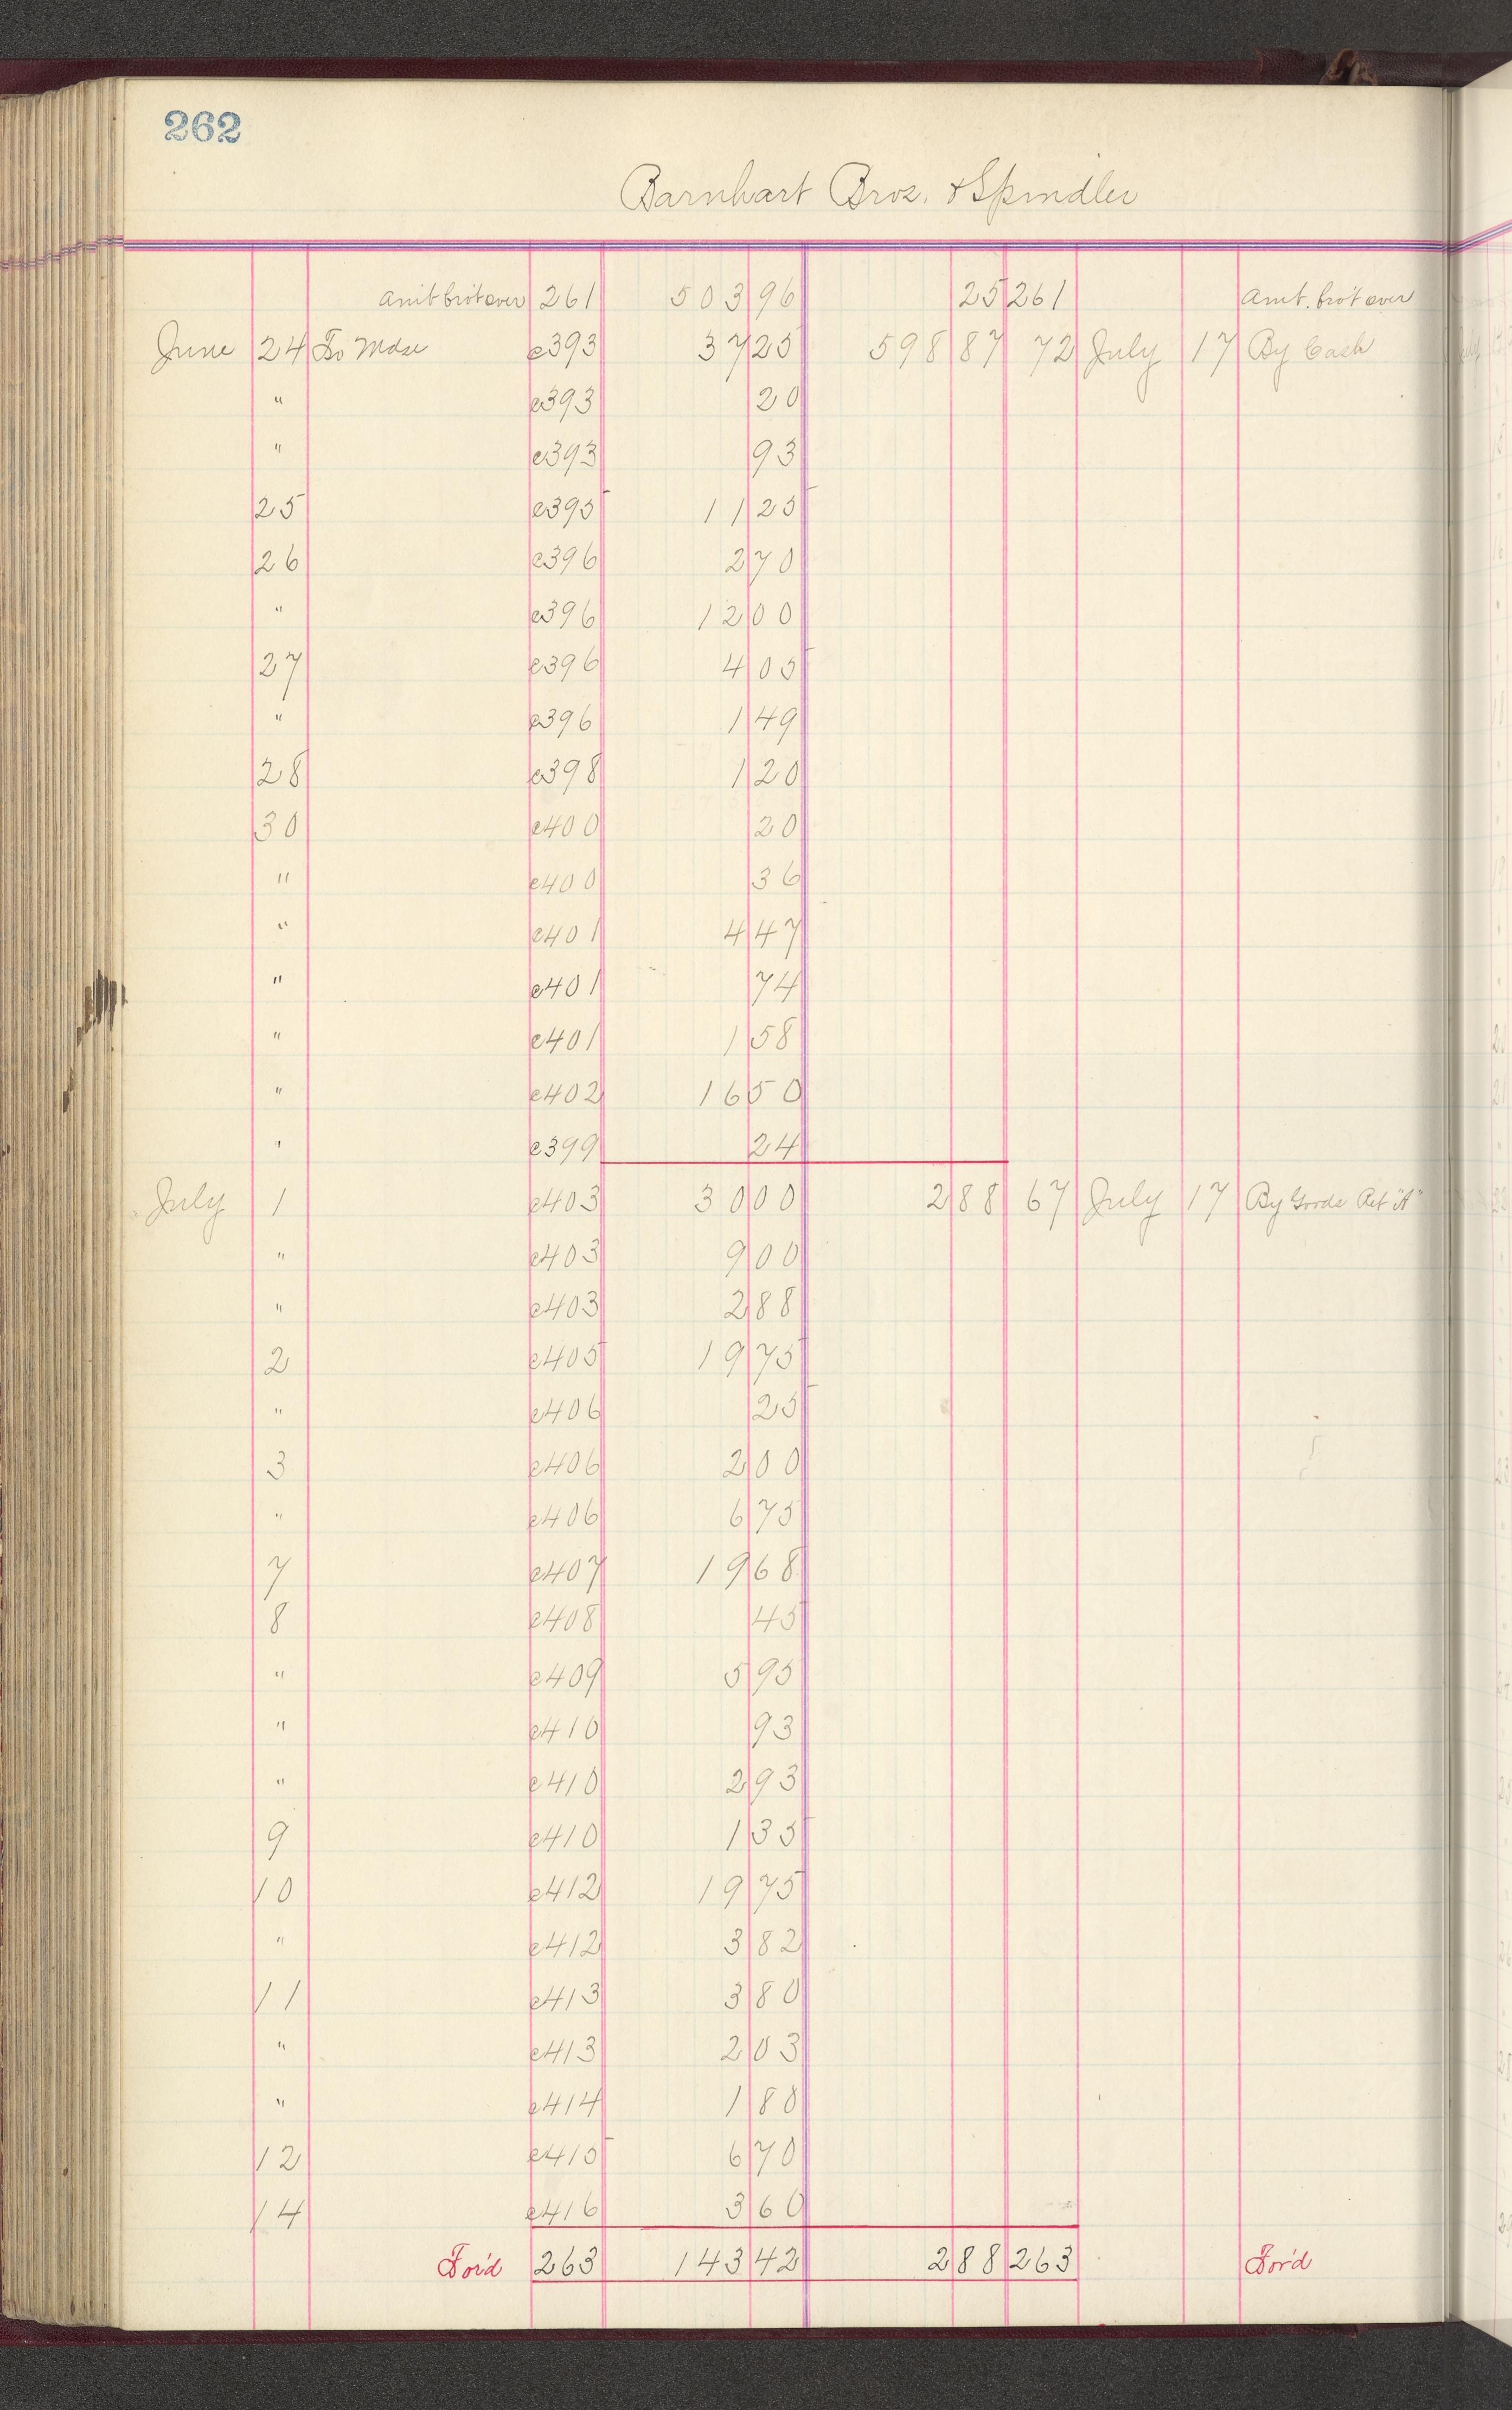 262
Barnhart Bros. & Spindler
amt bro't over 261 503 96 25 261 amt. bro't over
June 24 To Mdse c393 37 25 598 87 72 July 17 By Cash
" c393 20
" c393 93
25 c395 11 25
26 c396 2 70
" c396 12 00
27 c396 4 05
" c396 1 49
28 c398 1 20
30 c400 20
" c400 36
" c401 4 47
" c401 74
" c401 1 58
" c402 16 50
" c399 24
July 1 c403 30 00 2 88 67 July 17 By Goods Ret "A"
" c403 9 00
" c403 2 88
2 c405 19 75
" c406 25
3 c406 2 00
" c406 6 75
7 c407 19 68
8 c408 45
" c409 5 95
" c410 93
" c410 2 93
9 c410 1 35
10 c412 19 75
" c412 3 82
11 c413 3 80
" c413 2 03
" c414 1 80
12 c415 6 70
14 c416 3 60
For'd 263 143 42 2 88 263 For'd